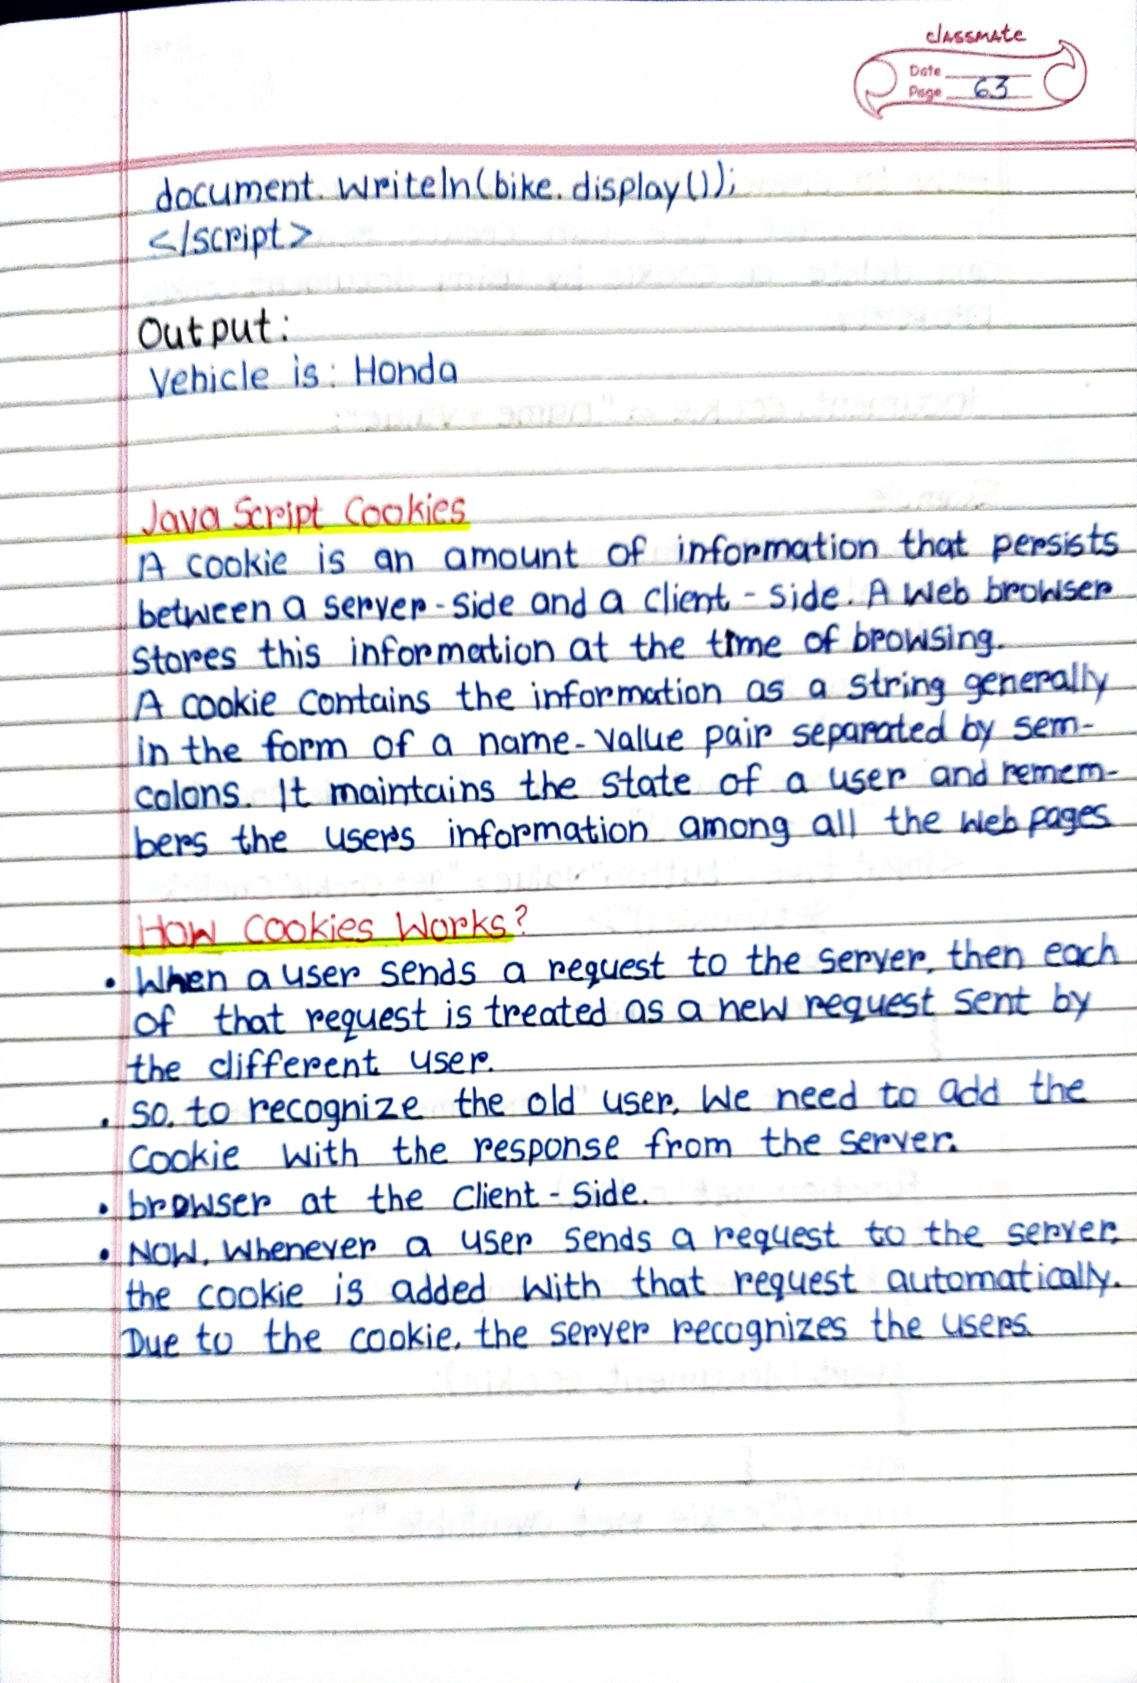 classmate
Date
Page 63
document.writeln(bike.display());
</script>
Output:
Vehicle is: Honda
JavaScript Cookies
A cookie is an amount of information that persists
between a server-side and a client-side. A web browser
stores this information at the time of browsing.
A cookie contains the information as a string generally
in the form of a name-value pair separated by sem-
colons. It maintains the state of a user and remem-
bers the users information among all the web pages
How Cookies Works?
• When a user sends a request to the server, then each
of that request is treated as a new request sent by
the different user.
• So, to recognize the old user, we need to add the
cookie with the response from the server.
• browser at the client-side.
• Now, whenever a user sends a request to the server,
the cookie is added with that request automatically.
Due to the cookie, the server recognizes the users.